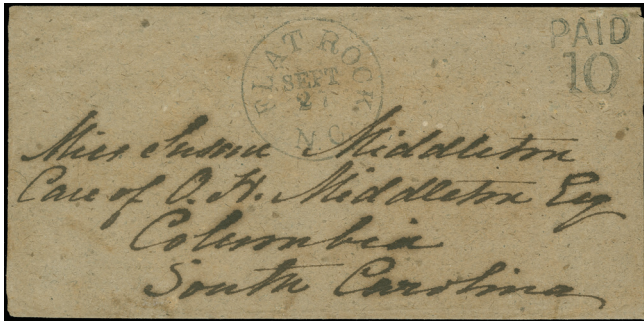 PAID
10
FLAT ROCK N.C.
SEPT
27
Miss Susan Middleton
Care of O. H. Middleton Esq
Columbia
South Carolina